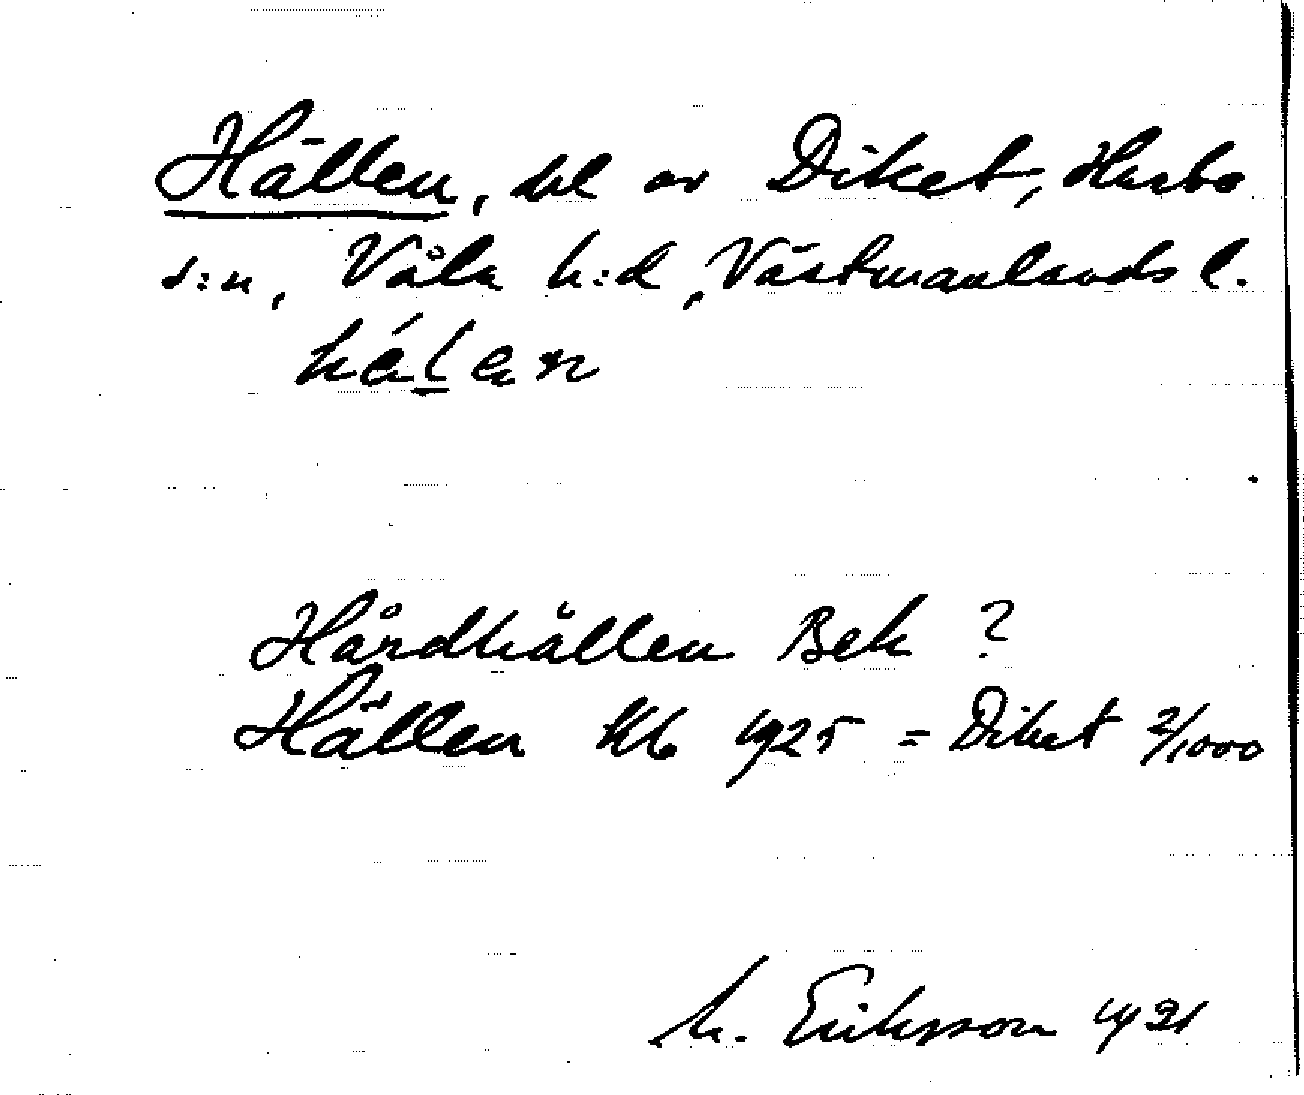 Hällen, del av Diket, Harbo
s:n, Våla h:d, Västmanlands l.
Hårdhällen Bek ?
Hällen Kb 1925 = Diket 2/1000
M. Eriksson 1921